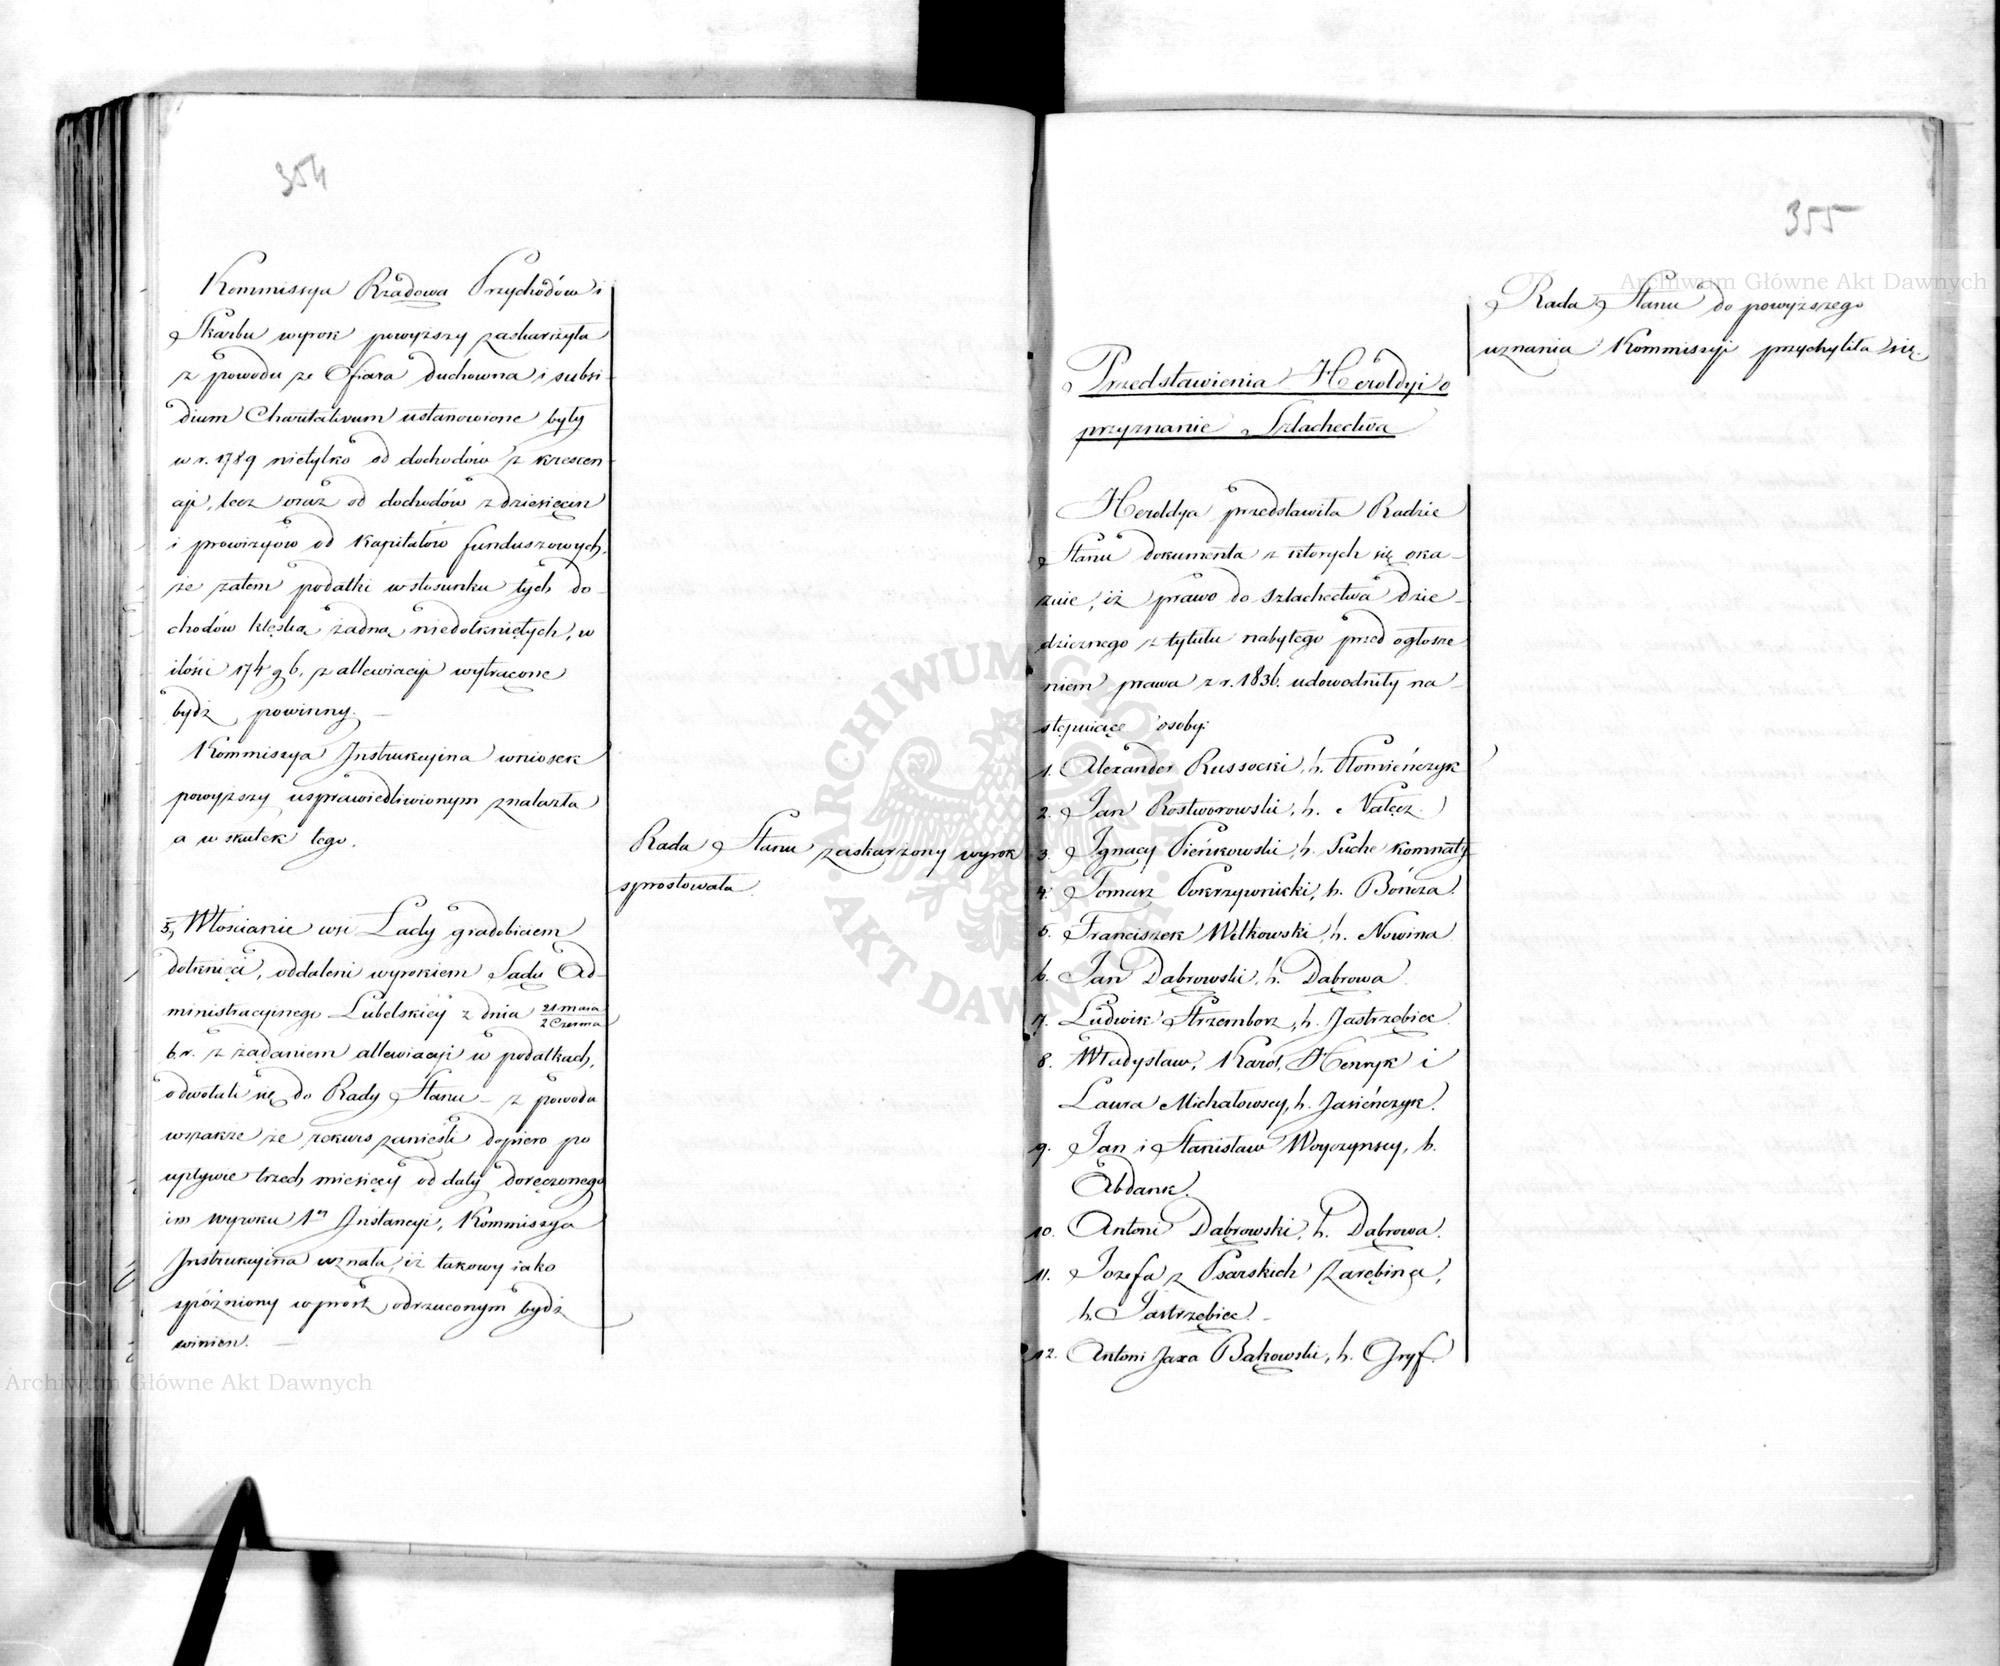 354
Kommissya Rządowa Przychodów i
Skarbu wyrok powyższy zaskarżyła
z powodu że Ofiara duchowna i subsi-
dium Charitativum ustanowione były
w r. 1789 nietylko od dochodów z krescen-
cyi, lecz oraz od dochodów z dziesięcin
i prowizyiów od Kapitałów funduszowych,
że zatem podatki w stosunku tych do-
chodów klęską żadną niedotkniętych, w
ilości z allewiacyi wytrącone
bydź powinny. —
Kommissya Instrukcyina wniosek
powyższy usprawiedliwionym znalazła
a w skutek tego.
Rada Stanu zaskarżony wyrok
sprostowała.
5, Włościanie wsi Lady gradobiciem
dotknięci, oddaleni wyrokiem Sądu Ad-
ministracyinego Lubelskiéy z dnia 21 maia / 2 Czerwca
b. r. z żądaniem allewiacyi w podatkach,
odwołali się do Rady Stanu – z powodu
wszakże że rekurs zanieśli dopiero po
upływie trzech miesięcy od daty doręczonego
im wyroku 1éj Instancyi, Kommissya
Instrukcyina uznała, iż takowy iako
spóźniony wprost odrzuconym bydź
winien. —
355
Rada Stanu do powyższego
uznania Kommissyi przychyliła się.
Przedstawienia Heroldyi o
przyznanie Szlachectwa
Heroldya przedstawiła Radzie
Stanu dokumenta z których się oka-
zuie, iż prawo do Szlachectwa dzie-
dzicznego z tytułu nabytego przed ogłosze-
niem prawa z r. 1836. udowodniły na-
stępuiące osoby:
1. Alexander Russocki, h. Płomieńczyk
2. Jan Rostworowski, h. Nałęcz.
3. Ignacy Pieńkowski, h. Suche komnaty
4. Tomasz Pokrzywnicki, h. Bończa.
5. Franciszek Wilkowski, h. Nowina
6. Jan Dąbrowski, h. Dąbrowa.
7. Ludwik Strzembosz, h. Jastrzębiec.
8. Władysław, Karol, Henryk i
Laura Michałowscy, h. Jasieńczyk.
9. Jan i Stanisław Woyczynscy, h.
Abdank.
10. Antoni Dąbrowski, h. Dąbrowa.
11. Józefa z Psarskich Zarębina,
h. Jastrzębiec. –
12. Antoni Jaxa Bąkowski, h. Gryf.
Archiwum Główne Akt Dawnych
ARCHIWUM GŁÓWNE AKT DAWNYCH
Archiwum Główne Akt Dawnych